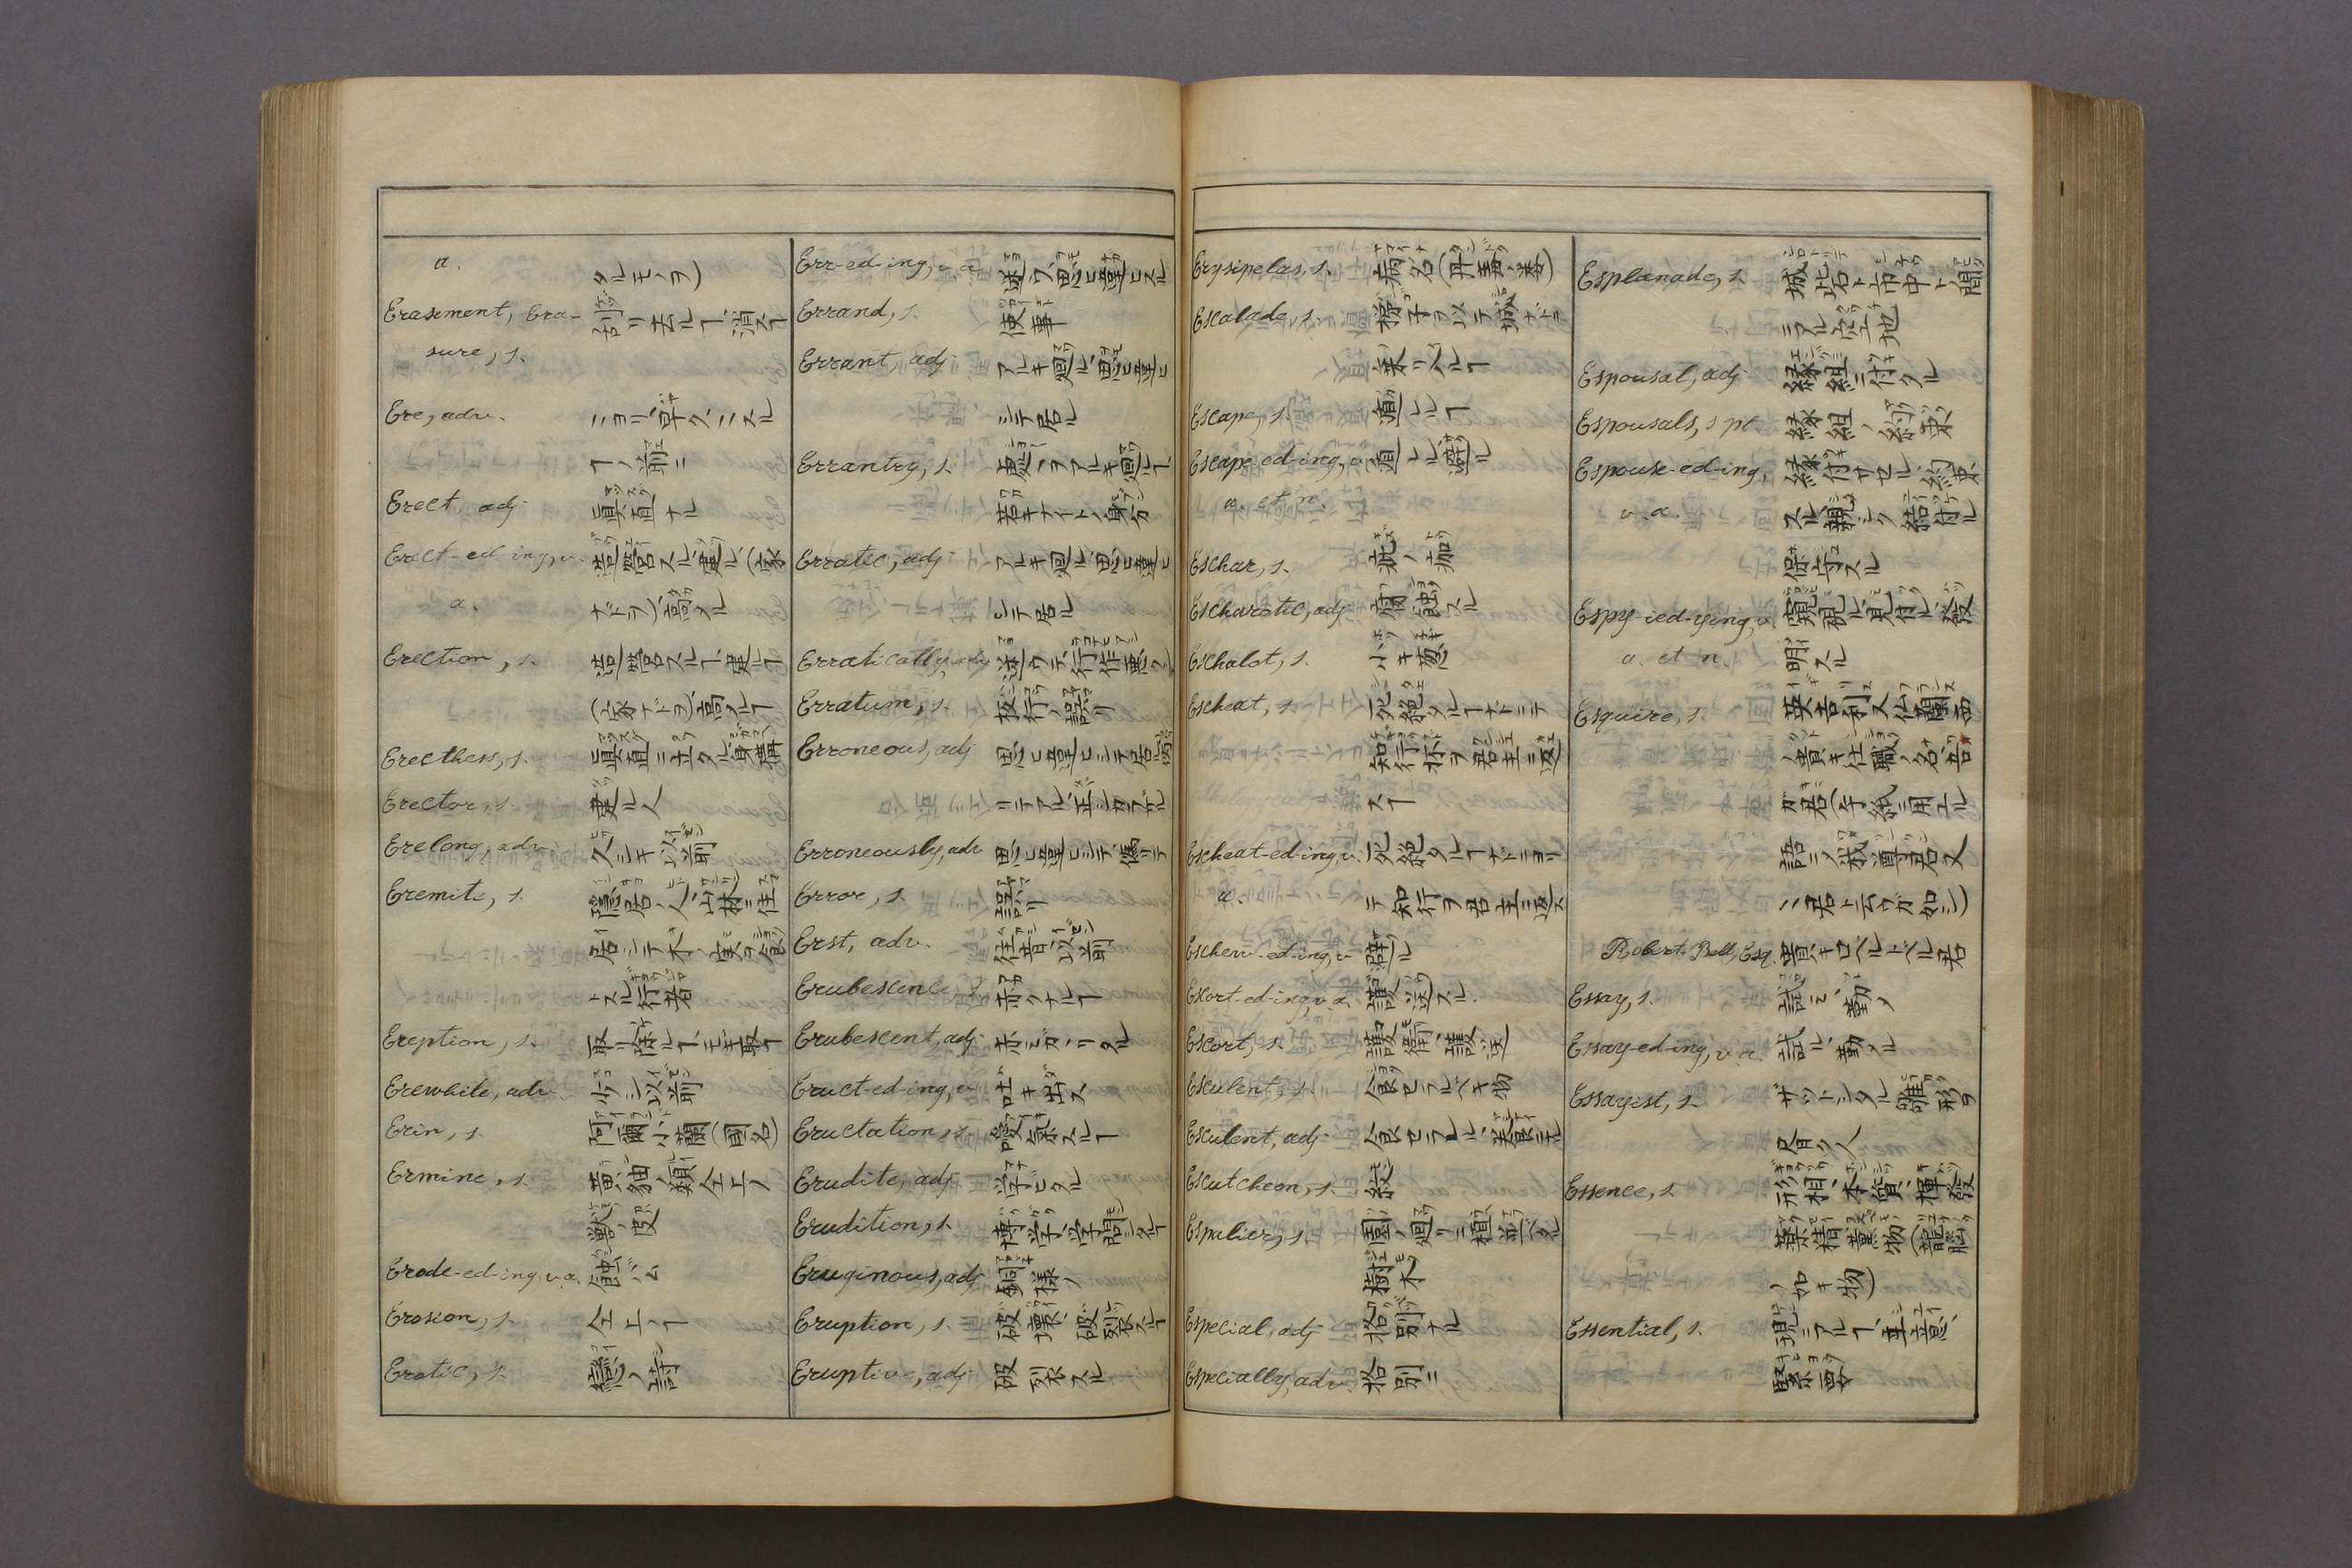 a. タルモノヲ)
Erasement, Era- 刮リ去ルヿ、消スヿ
sure, s.
Ere, adv. ニヨリ、早ク、ニスル
ヿノ前ニ
Erect, adj. 眞直ナル
Erect-ed-ing, v. 造營スル、建ル、(家
a. ナドヲ)、高クル
Erection, s. 造營スルヿ、建ルヿ
(家ナドヲ)高クルヿ
Erecthess, s. 眞直ニ立タル身構
Erector, s. 建ル人
Erelong, adv. 久シキ以前
Eremite, s. 隱居ノ人、山林ニ住
居シテ木ノ實ヲ食
トスル行者
Ereption, s. 取リ除ルヿ、モギ取ヿ
Erewhile, adv. 少シ以前
Erin, s. 阿爾蘭(国名)
Ermine, s. 黒貂ノ類、仝上ノ
獣ノ皮
Erode-ed-ing, v. a. 蝕バム
Erosion, s. 仝上ノヿ
Erotic, s. 戀ノ詩
Err-ed-ing, v. a. 迷フ、思ヒ違ヒスル
Errand, s. 使事
Errant, adj. アルキ廻ル、思ヒ違ヒ
シテ居ル
Errantry, s. アルキ廻ルヿ、
若キナイトノ身分
Erratic, adj. アルキ廻ル、思ヒ違ヒ
シテ居ル
Erratically, adv. 迷フテ、行作悪ク
Erratum, s. 板行ノ誤リ
Erroneous, adj. 思ヒ違ヒシテ居ル
リテアル、正シカラザル
Erroneously, adv. 思ヒ違ヒシテ、僞リテ
Error, s. 誤リ
Erst, adv. 往昔、以前
Erubescence, s. 赤クナルヿ
Erubescent, adj. 赤ミガヽリタル
Eruct-ed-ing, v. 吐キ出ス
Eructation, s. 噯気スルヿ
Erudite, adj. 学ビタル
Erudition, s. 博学、学問シタルヿ
Eruginous, adj. 銅様ノ
Eruption, s. 破壊、破裂スルヿ
Eruptive, adj. 破裂スル
Erysipelas, s. 病名(丹毒ノ
Escalade, s. 梯子ヲ以テ城ナドニ
乗リ入ルヿ
Escape, s. 遁レルヿ
Escape-ed-ing, v. 遁レル、避ル
a. et n.
Eschar, s. 疵ノ痂
Escharotic, adj. 腐蝕スル
Eschalot, s. 小キ葱
Escheat, s. 死絶タルヿナドニテ
知行抔ヲ君主ニ返
スヿ
Escheat-ed-ing, v. 死絶タルヿナドニヨリ
a. テ知行ヲ君主ニ返ス
Eschew-ed-ing, v. 避ル
Escort-ed-ing, v. a. 護送スル
Escort, s. 護衛、護送
Esculent, s. 食セラルベキ物
Esculent, adj. 食セラレル、養食ニナル
Escutcheon, s. 紋
Espalier, s. 園ノ廻リニ植並ベタル
樹木
Especial, adj. 格別ナル
Especially, adv. 格別ニ
Esplanade, s. 城砦ト市中ト間
ニアル空地
Espousal, adj. 縁組ニ付タル
Espousals, s. pl. 縁組ノ約束
Espouse-ed-ing, 縁付サセル、約束
v. a. スル、親シク結付ル
保守スル
Espy-ied-ying, v. 窺視ル、見付ル、發
a. et n. 明スル
Esquire, s. 英吉利又佛蘭西
ノ貴キ仕職ノ名、吾
ガ君(手紙ニ用エル
語ニシテ我尊君又
ハ君ト云フガ如シ)
Robert Bell, Esq. 貴キロベルトベル君
Essay, s. 試ミ、勤ノ
Essay-ed-ing, v. a. 試ル、勤ル
Essayist, s. ザットシタル雛形ヲ
Essence, s. 形相、本質、揮發
薬精、薫物(龍脳
ノ如キ物)
Essential, s. 現ニアルヿ、主意、
緊要